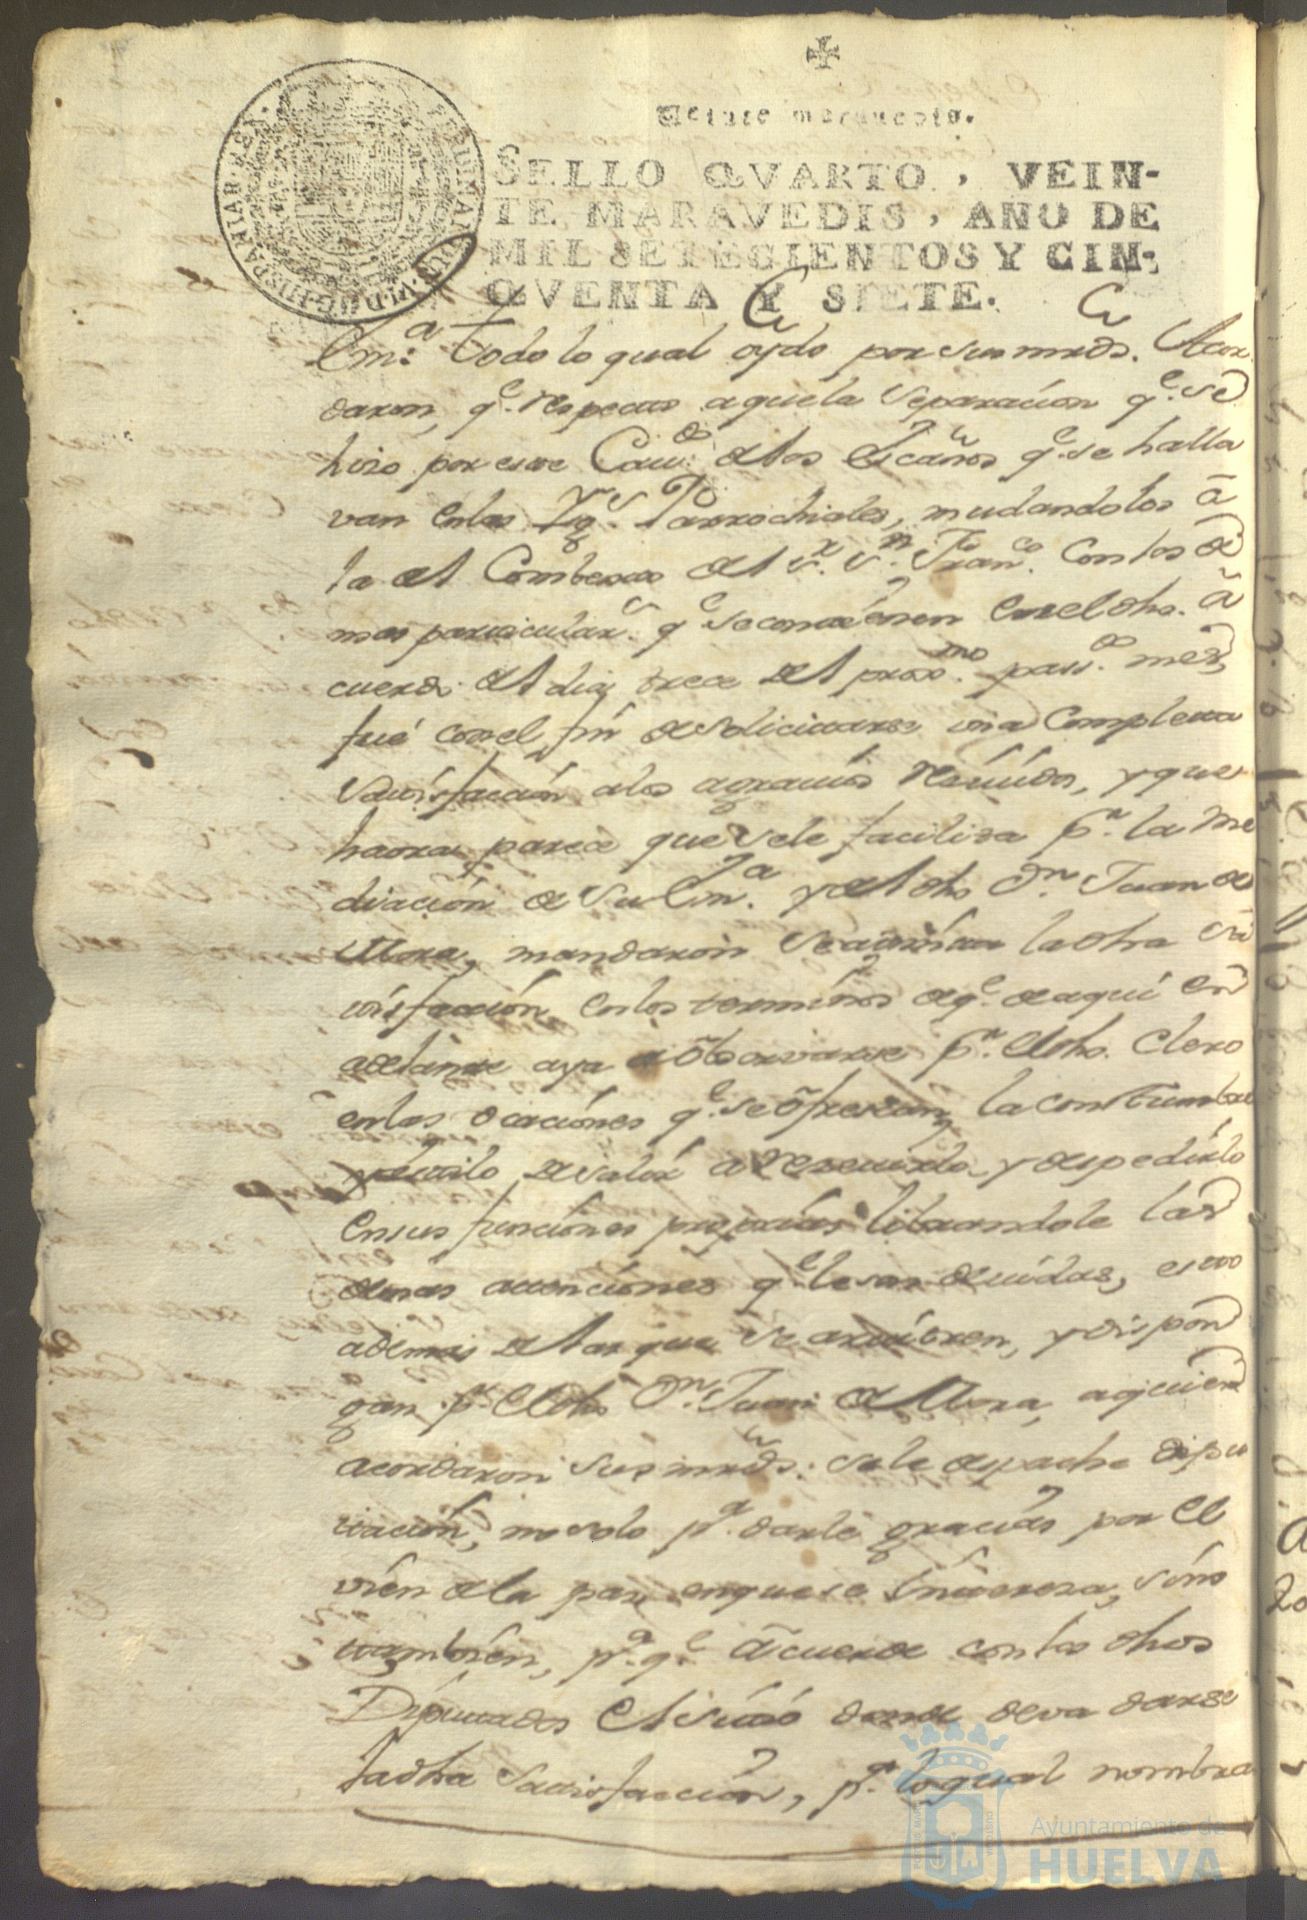 Veinte maravedis.
SELLO QVARTO, VEIN-
TE MARAVEDIS, AÑO DE
MIL SETECIENTOS Y CIN-
QVENTA Y SIETE.
Em.ª todo lo qual oydo por sus mrds. Acor
daron, q.e respecto a que la separacion q.e se
hizo por este Cav.do de los Escaños q.e se halla
van en las Ygs. Parrochiales, mudandolos â
la del Combento del S.r S.n Fran.co con los de
mas particular.s q.e se contienen en el dho. â
cuerdo del dia trece del prox.mo pass.do mes,
fué con el fin de solicitarse una completa
satisfaccion a los agravios recividos, y que
haora parece que se le facilita p.r la me
diación de Su Em.ª y del dho D.n Juan de
Mora, mandaron se admita la dha sa
tisfacción en los terminos de q.e de aqui en
adelante aya de observarse p.r el dho. Clero
en las ocaciónes q.e se ôfrescan la constumbre
de salir a recevirlo y despedirlo
en sus funciones proprias librandole las
demas atenciones q.e le son devidas, esto
ademas de lo que se arvitren, y dispon
gan p.r el dho D.n Juan de Mora, a quien
acordaron sus mrds. se le despache dipu
tación, no solo p.a darle gracias por el
vien de la paz en que se interesa, sino
tambien, p.a q.e âcuerde con los dhos
Diputados el sitio donde deva darse
la dha satisfaccion, p.a lo qual nombra
Ayuntamiento de
HUELVA